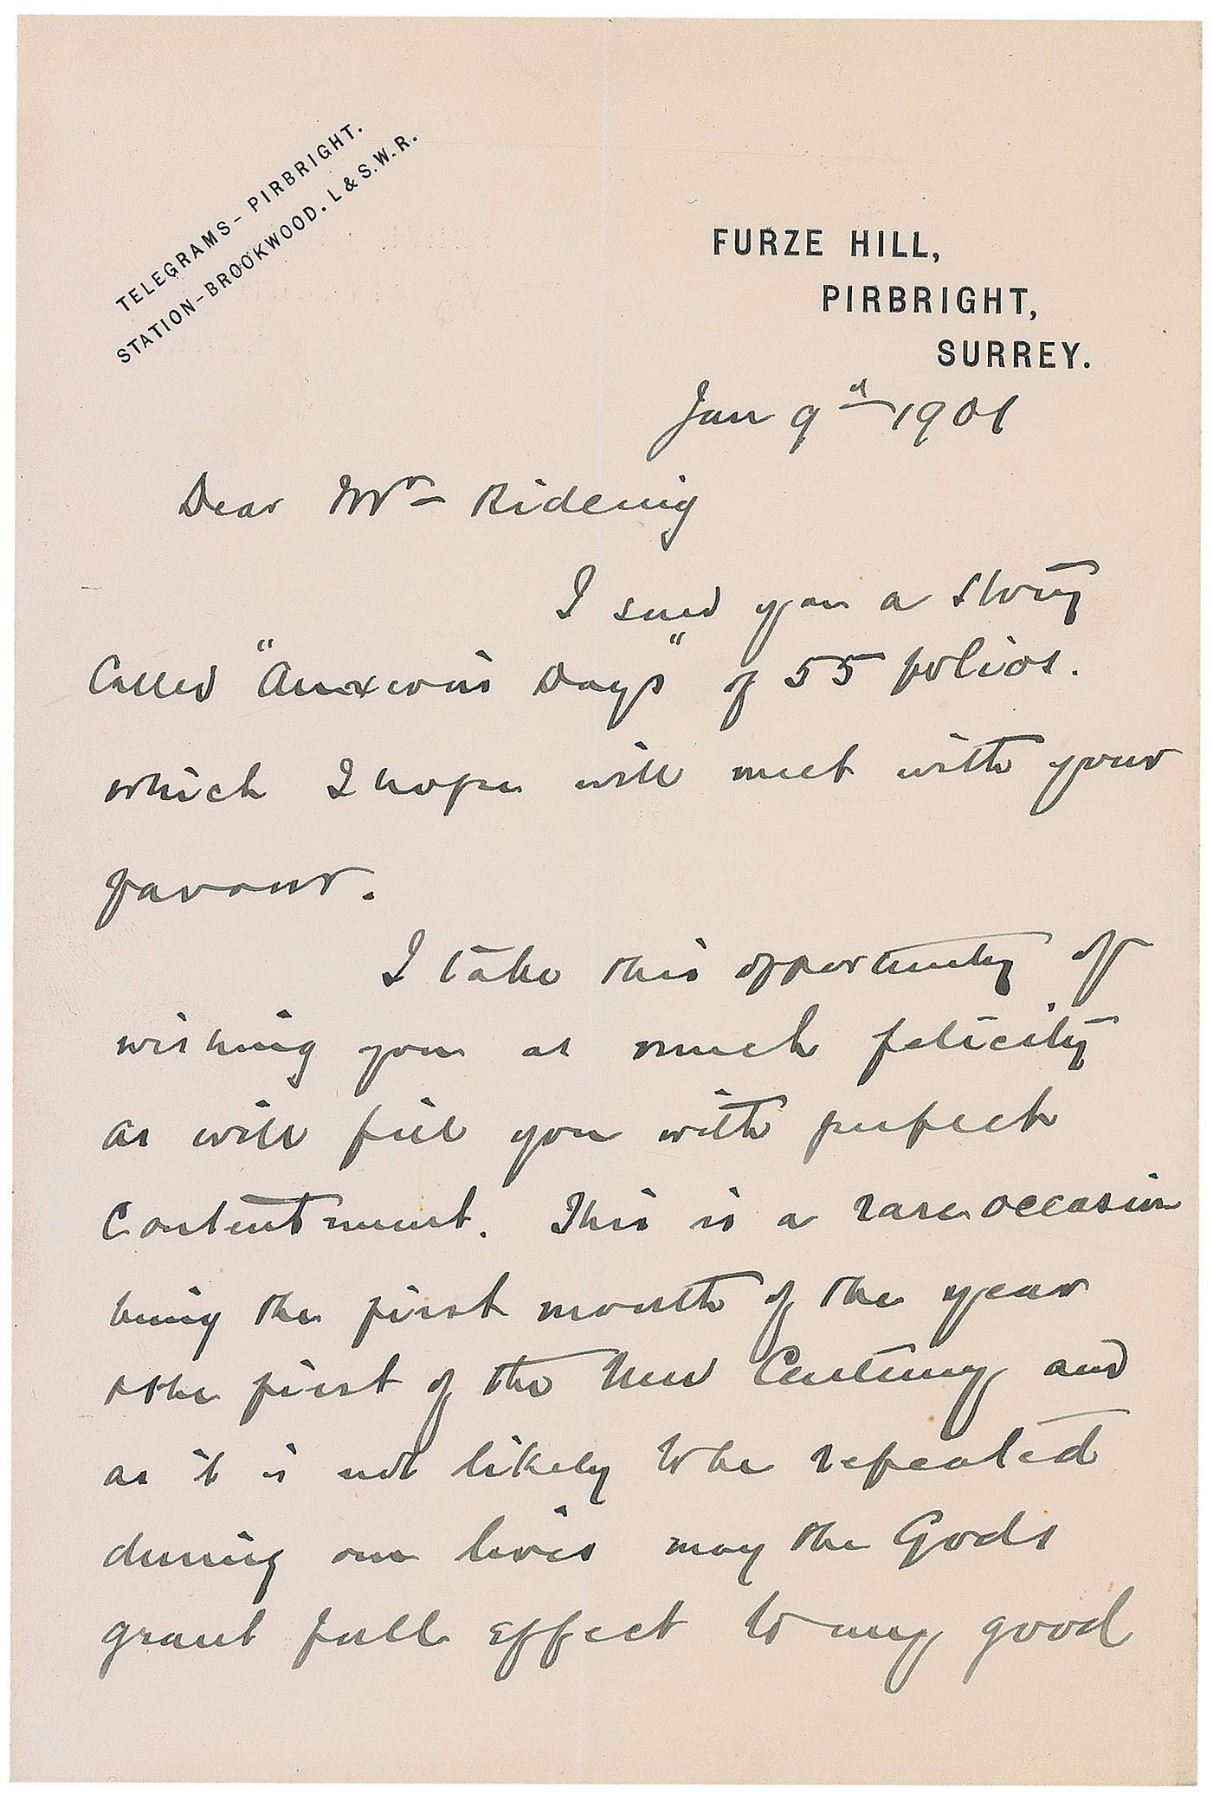 TELEGRAMS- PIRBRIGHT.
STATION-BROOKWOOD. L & S.W.R.
FURZE HILL,
PIRBRIGHT,
SURREY.
Jan 9th 1901
Dear Mr Rideing
I send you a story
Called "Anxious Days" of 55 folios.
which I hope will meet with your
favour.
I take this opportunity of
wishing you as much felicity
as will fill you with perfect
Contentment. This is a rare occasion
being the first month of the year
& the first of the New Century and
as it is not likely to be repeated
during our lives may the Gods
grant full effect to my good